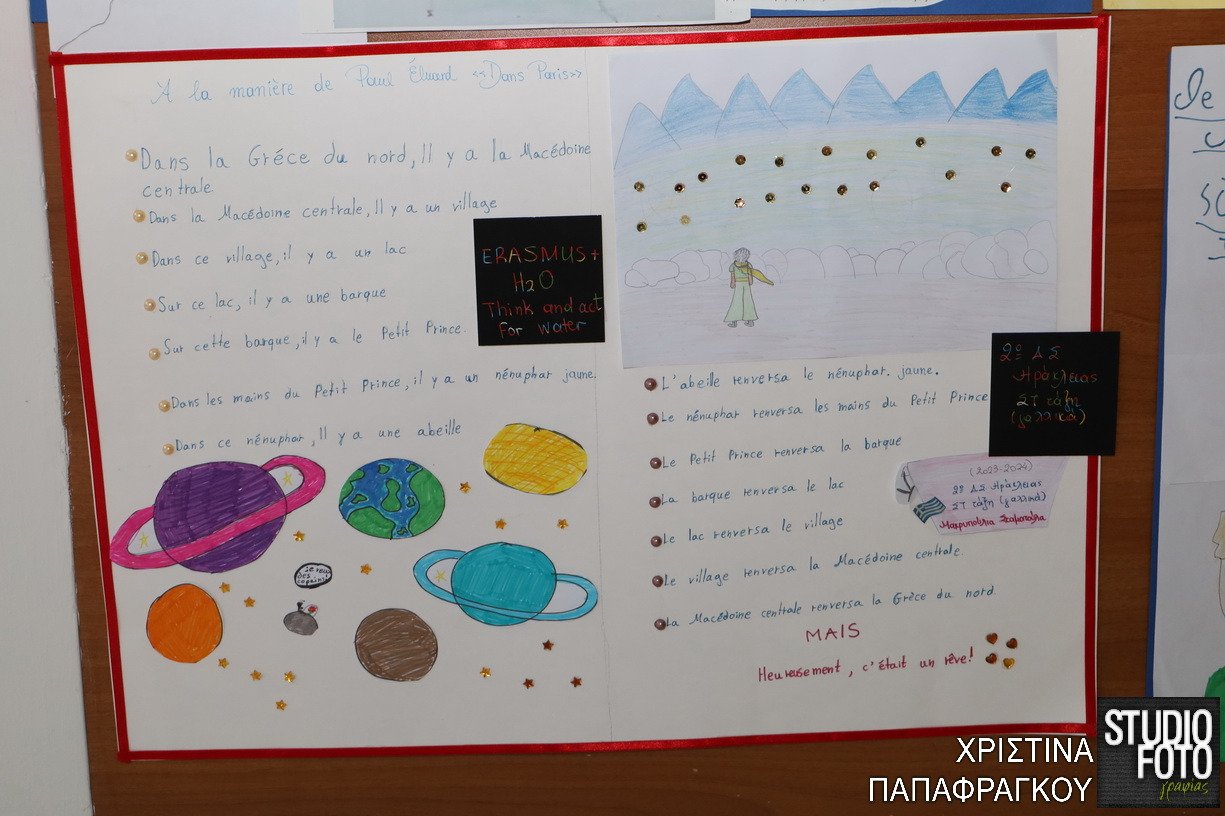 A la manière de Paul Éluard <<Dans Paris>>
Dans la Gréce du nord, Il y a la Macédoine
centrale.
Dans la Macédoine centrale, Il y a un village
Dans ce village, il y a un lac
Sur ce lac, il y a une barque
Sur cette barque, il y a le Petit Prince.
Dans les mains du Petit Prince, il y a un nénuphar jaune.
Dans ce nénuphar, Il y a une abeille
ERASMUS+
H2O
Think and act
For water
Je veux
Des
copains!
L'abeille renversa le nénuphar. jaune.
Le nénuphar renversa les mains du Petit Prince
Le Petit Prince renversa la barque
La barque renversa le lac
Le lac renversa le village
Le village renversa la Macédoine centrale.
La Macédoine centrale renversa la Grèce du nord.
MAIS
Heureusement, c'était un rêve!
2º ΔΣ
Ηράκλειας
ΣΤ τάξη
(γαλλικά)
(2023-2024)
2º ΔΣ Ηράκλειας
ΣΤ τάξη (γαλλικά)
Je
ΧΡΙΣΤΙΝΑ
ΠΑΠΑΦΡΑΓΚΟΥ
STUDIO
FOTO
γραφίας